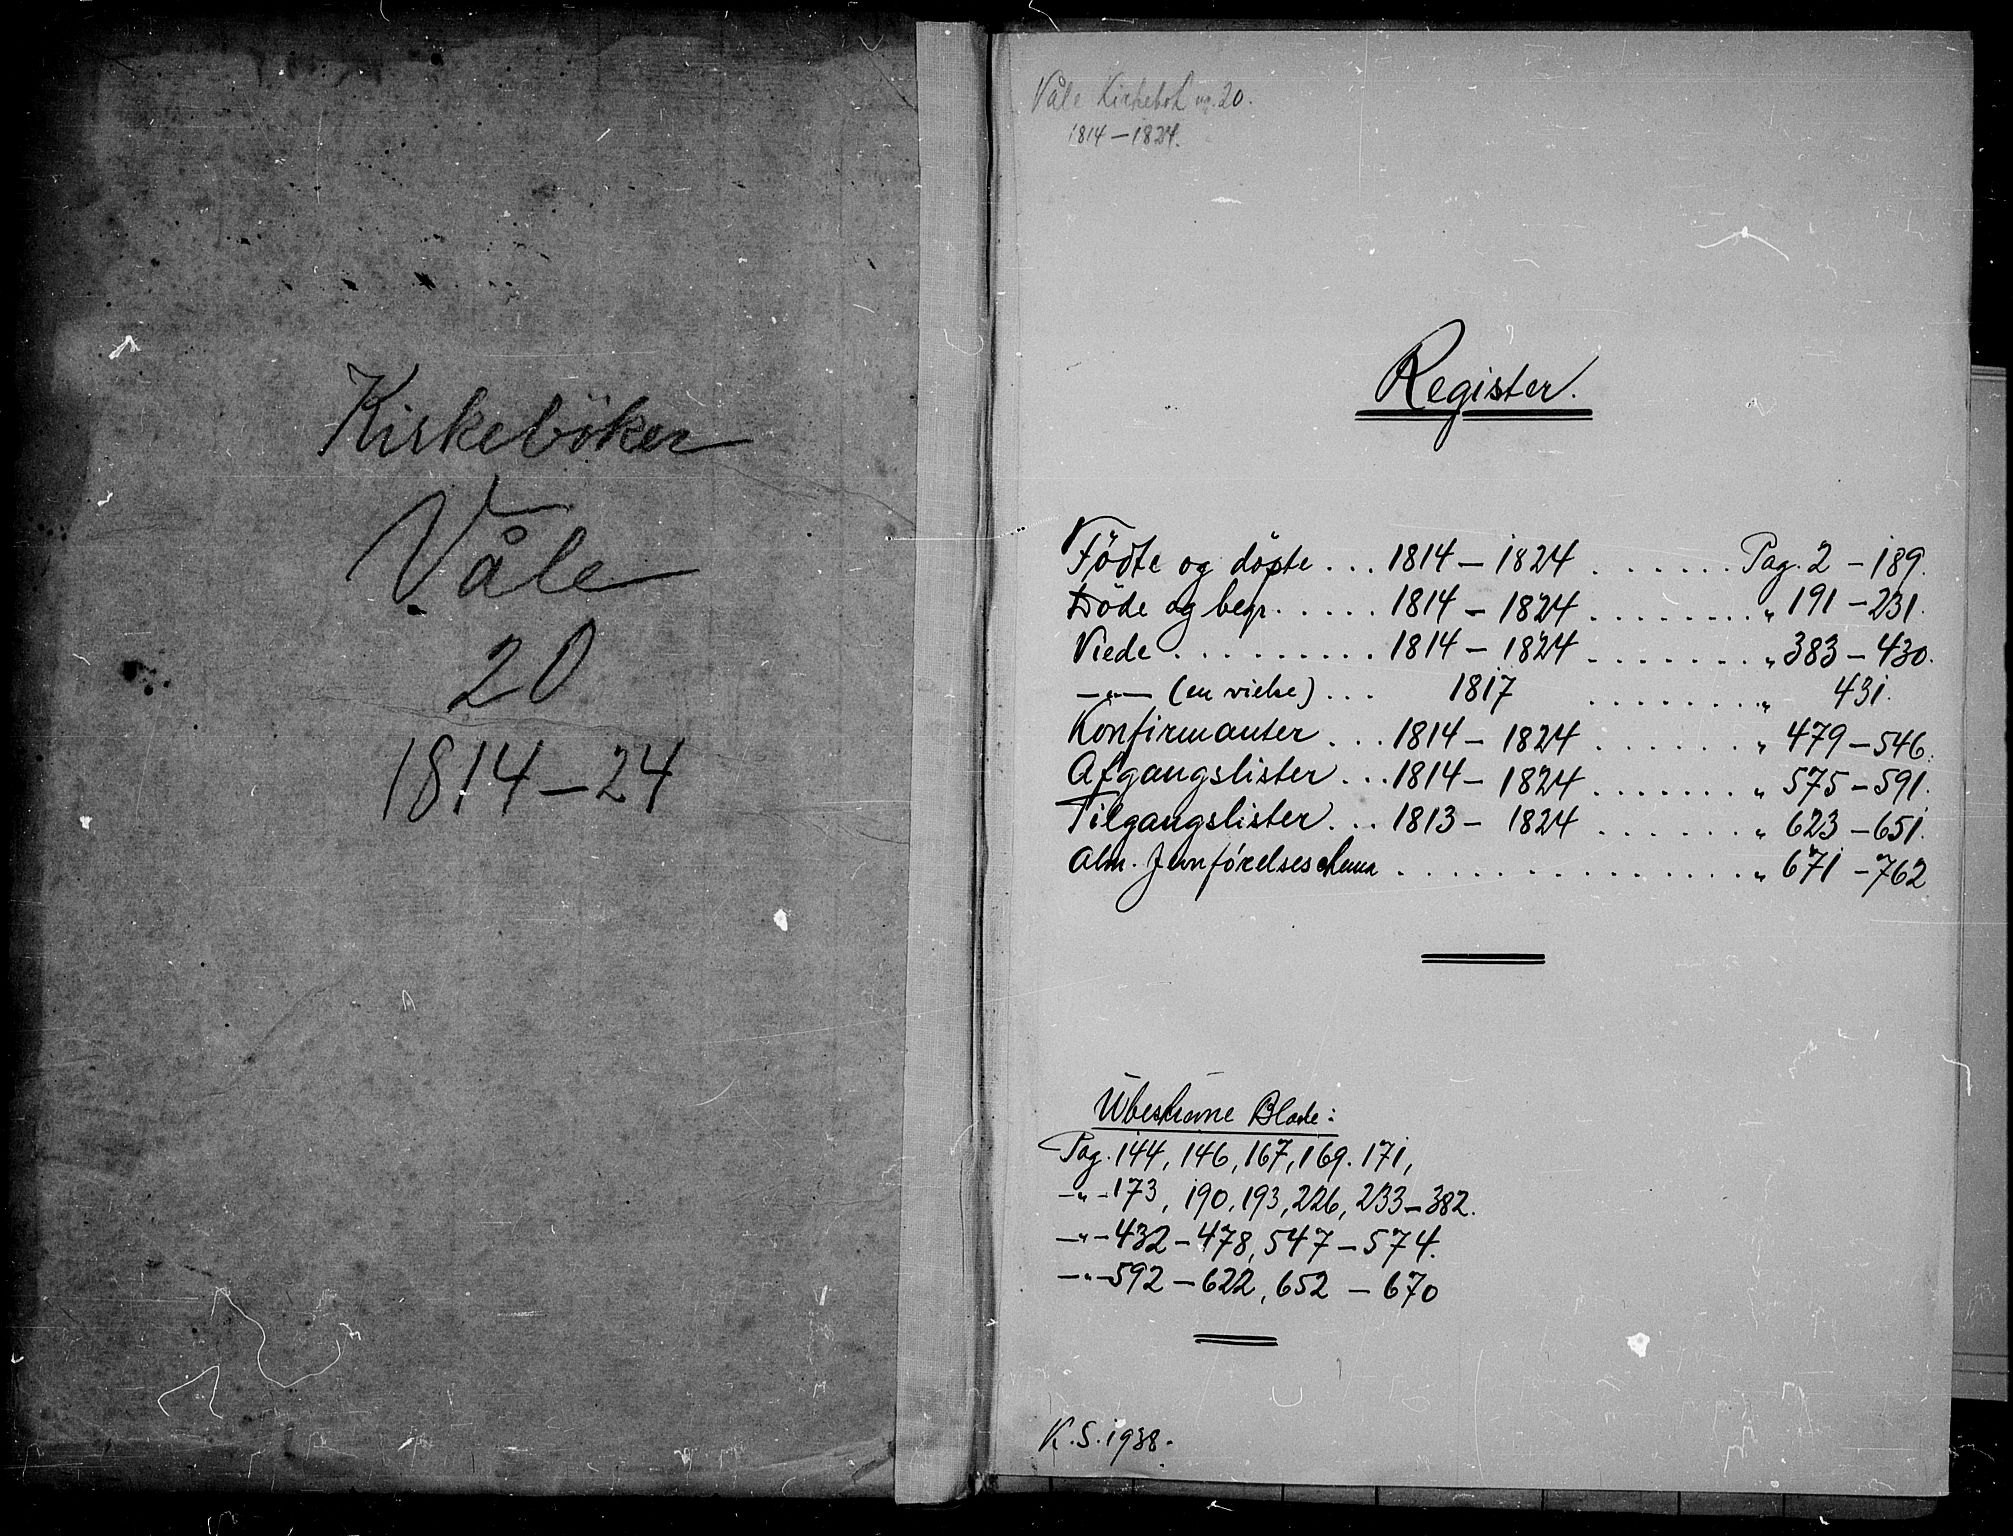 Kirkebøker
Våle
20
1814–24
Våle Kirkebok nr. 20.
1814–1824.
Register.
Födte og döpte ... 1814–1824 ...... Pag. 2–189.
Döde og begr. .... 1814–1824 ........ „ 191–231.
Viede ......... 1814–1824 ........ „ 383–430.
—„— (en vielse) ... 1817 ........ „ 431.
Konfirmanter ... 1814–1824 ....... „ 479–546.
Afgangslister ... 1814–1824 ....... „ 575–591.
Tilgangslister ... 1813–1824 ...... „ 623–651.
Alm. Jevnförelseschema ............... „ 671–762
Ubeskrevne Blade:
Pag. 144, 146, 167, 169. 171,
—„— 173, 190, 193, 226, 233–382.
—„— 432–478, 547–574.
—„— 592–622, 652–670
K.S. 1938.